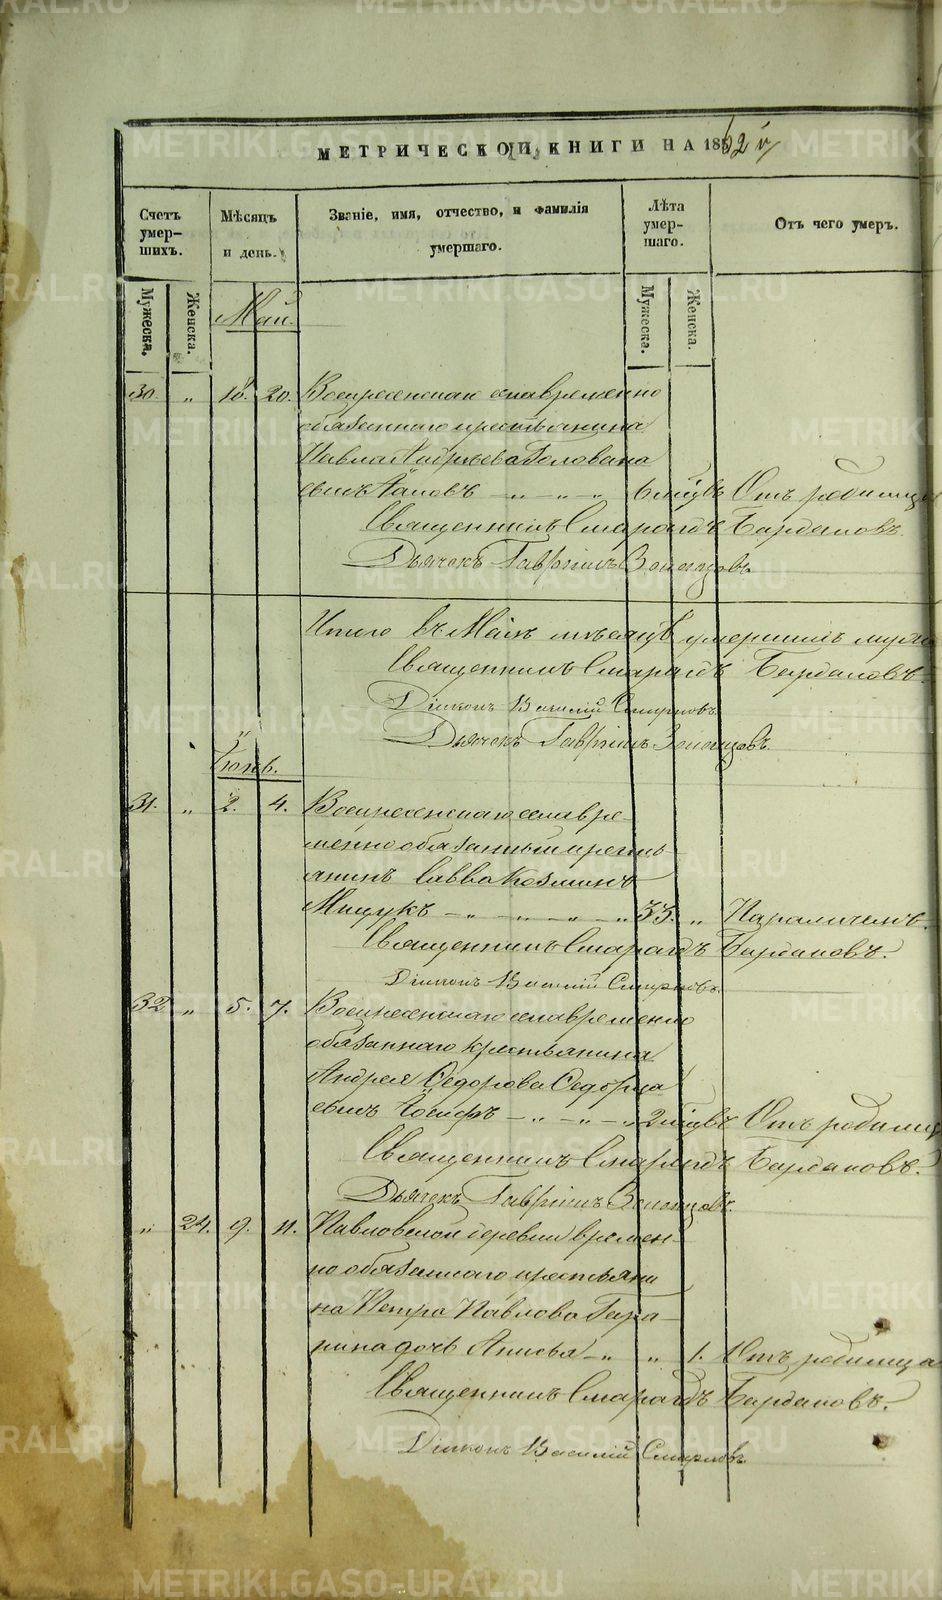 МЕТРИЧЕСКОЙ КНИГИ НА 1862 й
Счетъ умер- шихъ.
Мѣсяцъ и день.
Званіе, имя, отчество, и фамилія умершаго.
Лѣта умер- шаго.
Отъ чего умеръ.
Мужеска.
Женска.
Май.
Мужеска.
Женска.
30. „ 18. 20. Воскресенскаго села временно
обязаннаго крестьянина
Павла Андреева Голована
сынъ Іаковъ — „ — „ — „ 6 мѣсяцъ Отъ родимца
Священникъ Смарагдъ Бардаковъ.
Дьячекъ Гавріилъ
Итого въ Маѣ мѣсяцѣ умершихъ
Священникъ Смарагдъ Бардаковъ.
Діаконъ Василій Смирновъ
Дьячекъ Гавріилъ
Іюнь.
31. „ 2. 4. Воскресенскаго села вре-
менно обязанный кресть-
янинъ Савва Козминъ
Мищукъ — „ — „ — „ — „ 33. „ Параличемъ.
Священникъ Смарагдъ Бардаковъ.
Діаконъ Василій Смирновъ.
32 „ 5. 7. Воскресенскаго села временно
обязаннаго крестьянина
Андрея Ѳедорова
сынъ Іосифъ — „ — „ — „ 2 мѣсяцъ Отъ родимца
Священникъ Смарагдъ Бардаковъ.
Дьячекъ Гавріилъ
„ 24. 9. 11. Павловской деревни времен-
но обязаннаго крестьяни
на Петра Павлова Гара-
нина дочь Анисья — „ „ 1. Отъ родимца
Священникъ Смарагдъ Бардаковъ.
Діаконъ Василій Смирновъ
METRIKI.GASO-URAL.RU